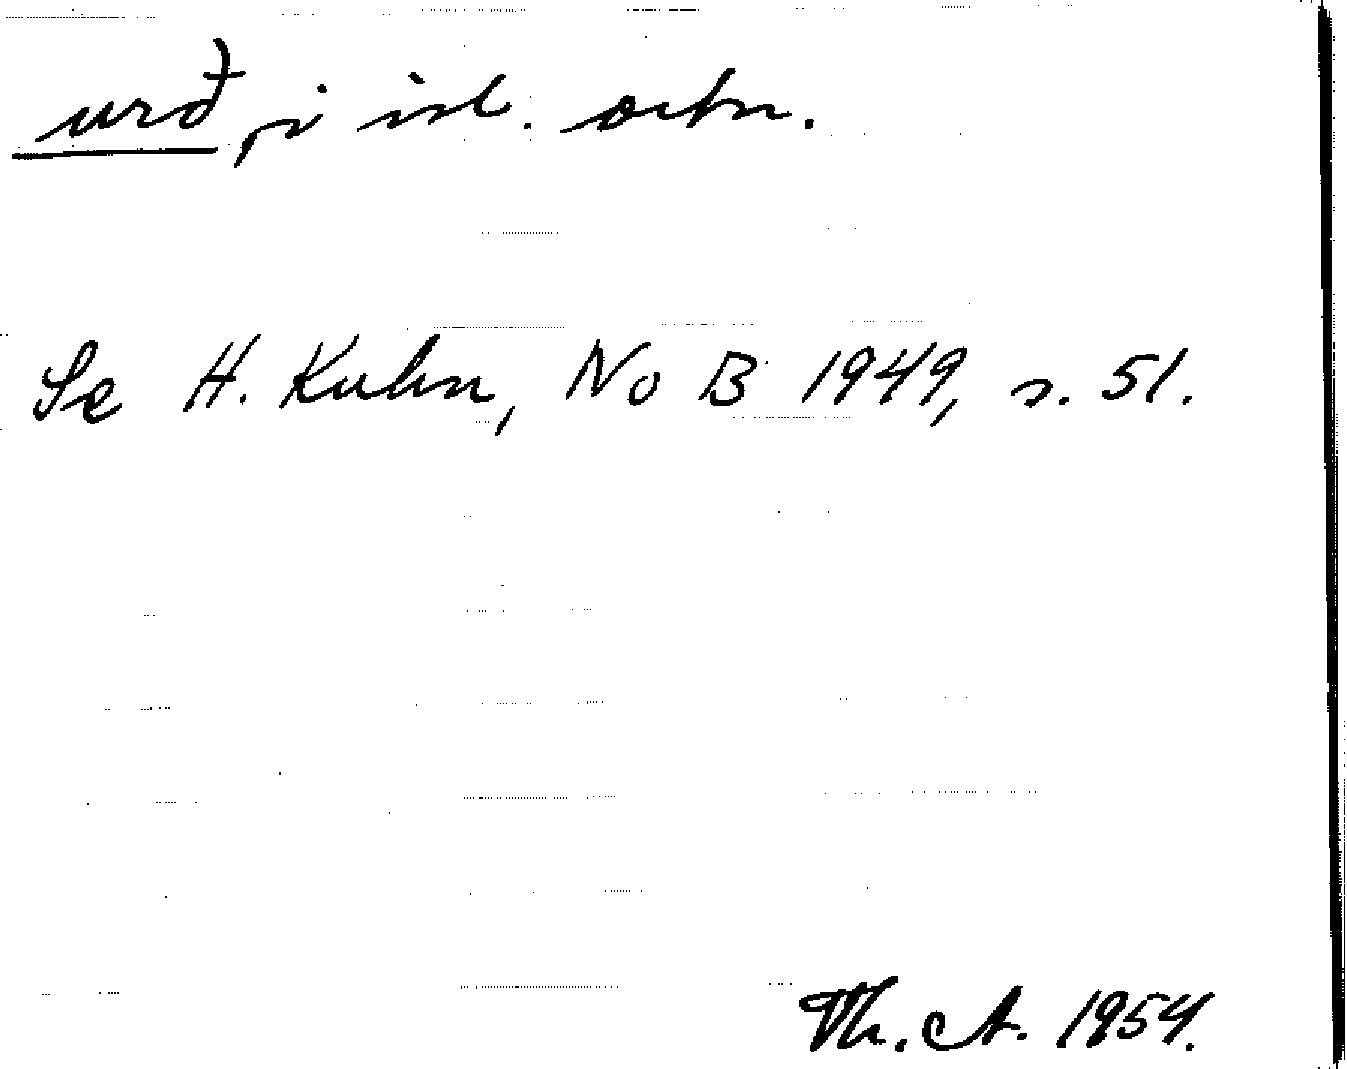 urđ, i isl. ortn.
Se H. Kuhn, No B 1949, s. 51.
Th. A. 1954.